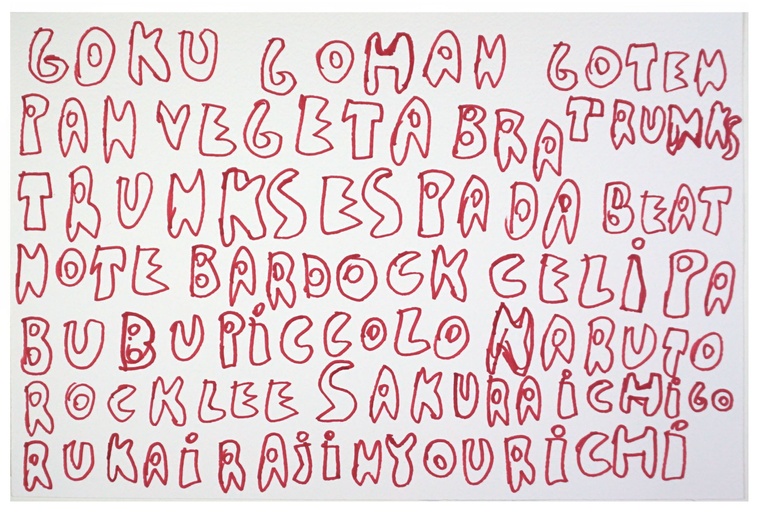 GOKU GOHAN GOTEN
PAN VEGETA BRA TRUNKS
TRUNKS ESPADA BEAT
NOTE BARDOCK CELIPA
BUBU PICCOLO NARUTO
ROCKLEE SAKURA ICHIGO
RUKAI RAJIN YOURICHI